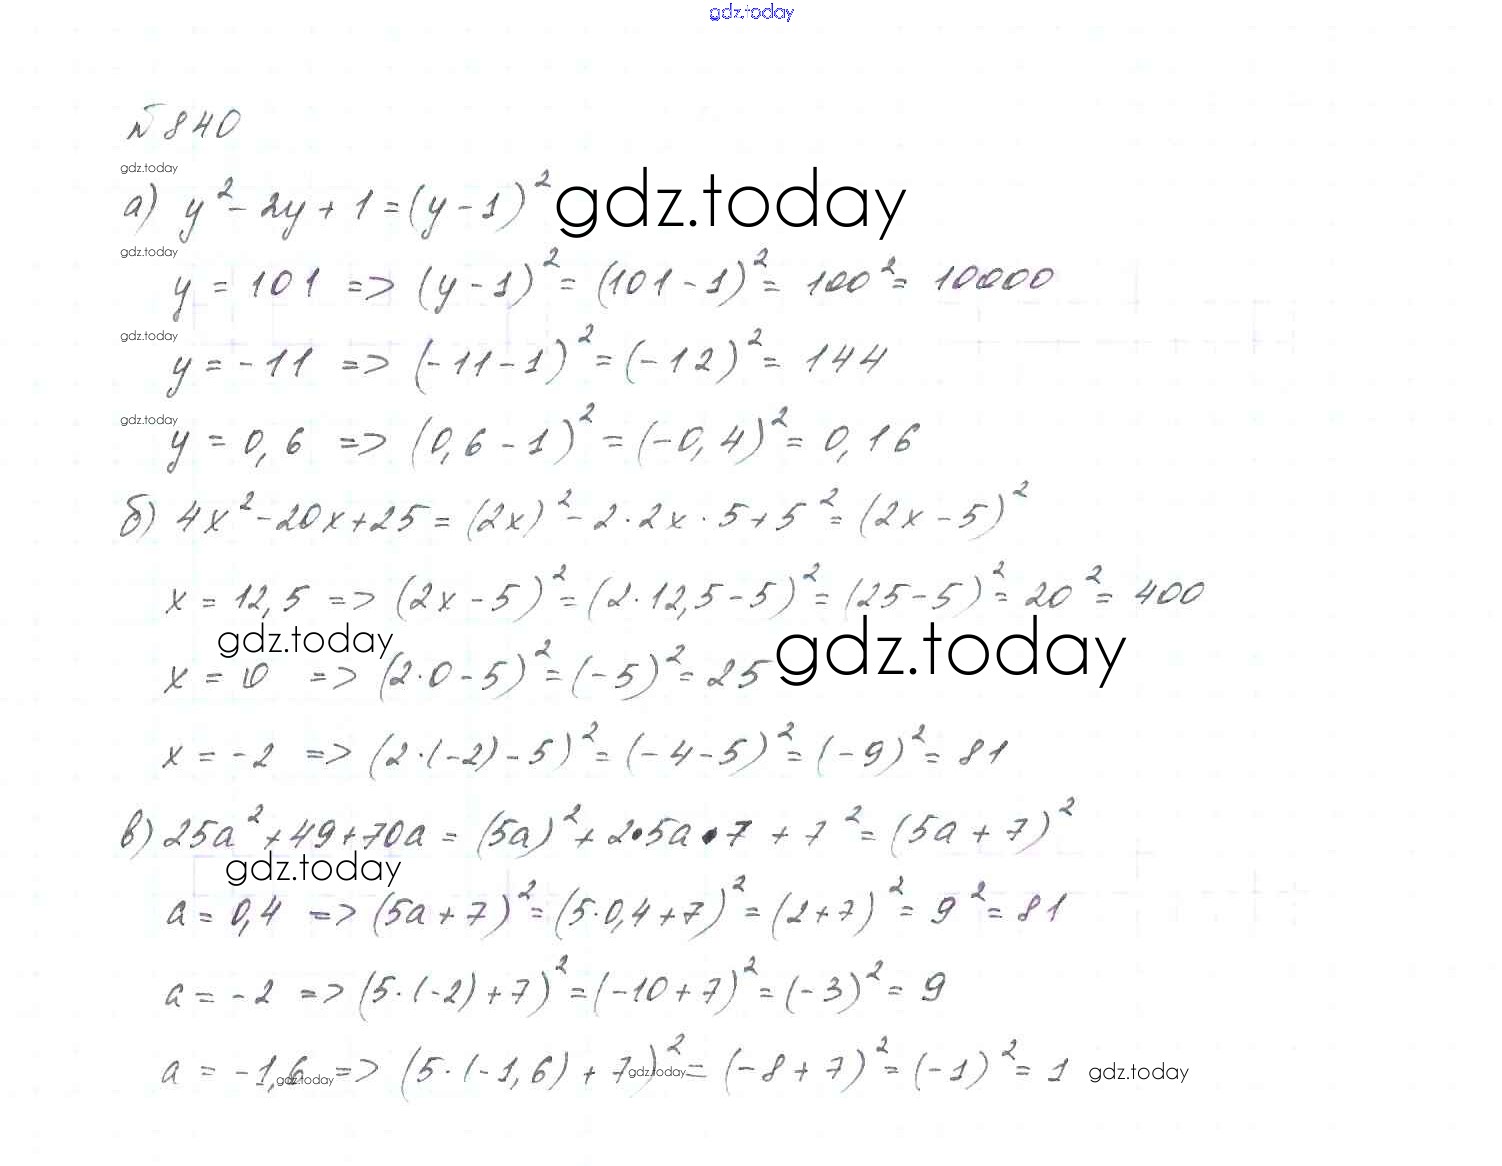 gdz.today
№ 840
gdz.today
а) y² - 2y + 1 = (y - 1)² gdz.today
gdz.today
y = 101 => (y - 1)² = (101 - 1)² = 100² = 10000
gdz.today
y = -11 => (-11 - 1)² = (-12)² = 144
gdz.today
y = 0,6 => (0,6 - 1)² = (-0,4)² = 0,16
б) 4x² - 20x + 25 = (2x)² - 2·2x·5 + 5² = (2x - 5)²
x = 12,5 => (2x - 5)² = (2·12,5 - 5)² = (25 - 5)² = 20² = 400
gdz.today gdz.today
x = 0 => (2·0 - 5)² = (-5)² = 25
x = -2 => (2·(-2) - 5)² = (-4 - 5)² = (-9)² = 81
в) 25a² + 49 + 70a = (5a)² + 2·5a·7 + 7² = (5a + 7)²
gdz.today
a = 0,4 => (5a + 7)² = (5·0,4 + 7)² = (2 + 7)² = 9² = 81
a = -2 => (5·(-2) + 7)² = (-10 + 7)² = (-3)² = 9
a = -1,6 => (5·(-1,6) + 7)² = (-8 + 7)² = (-1)² = 1 gdz.today
gdz.today gdz.today